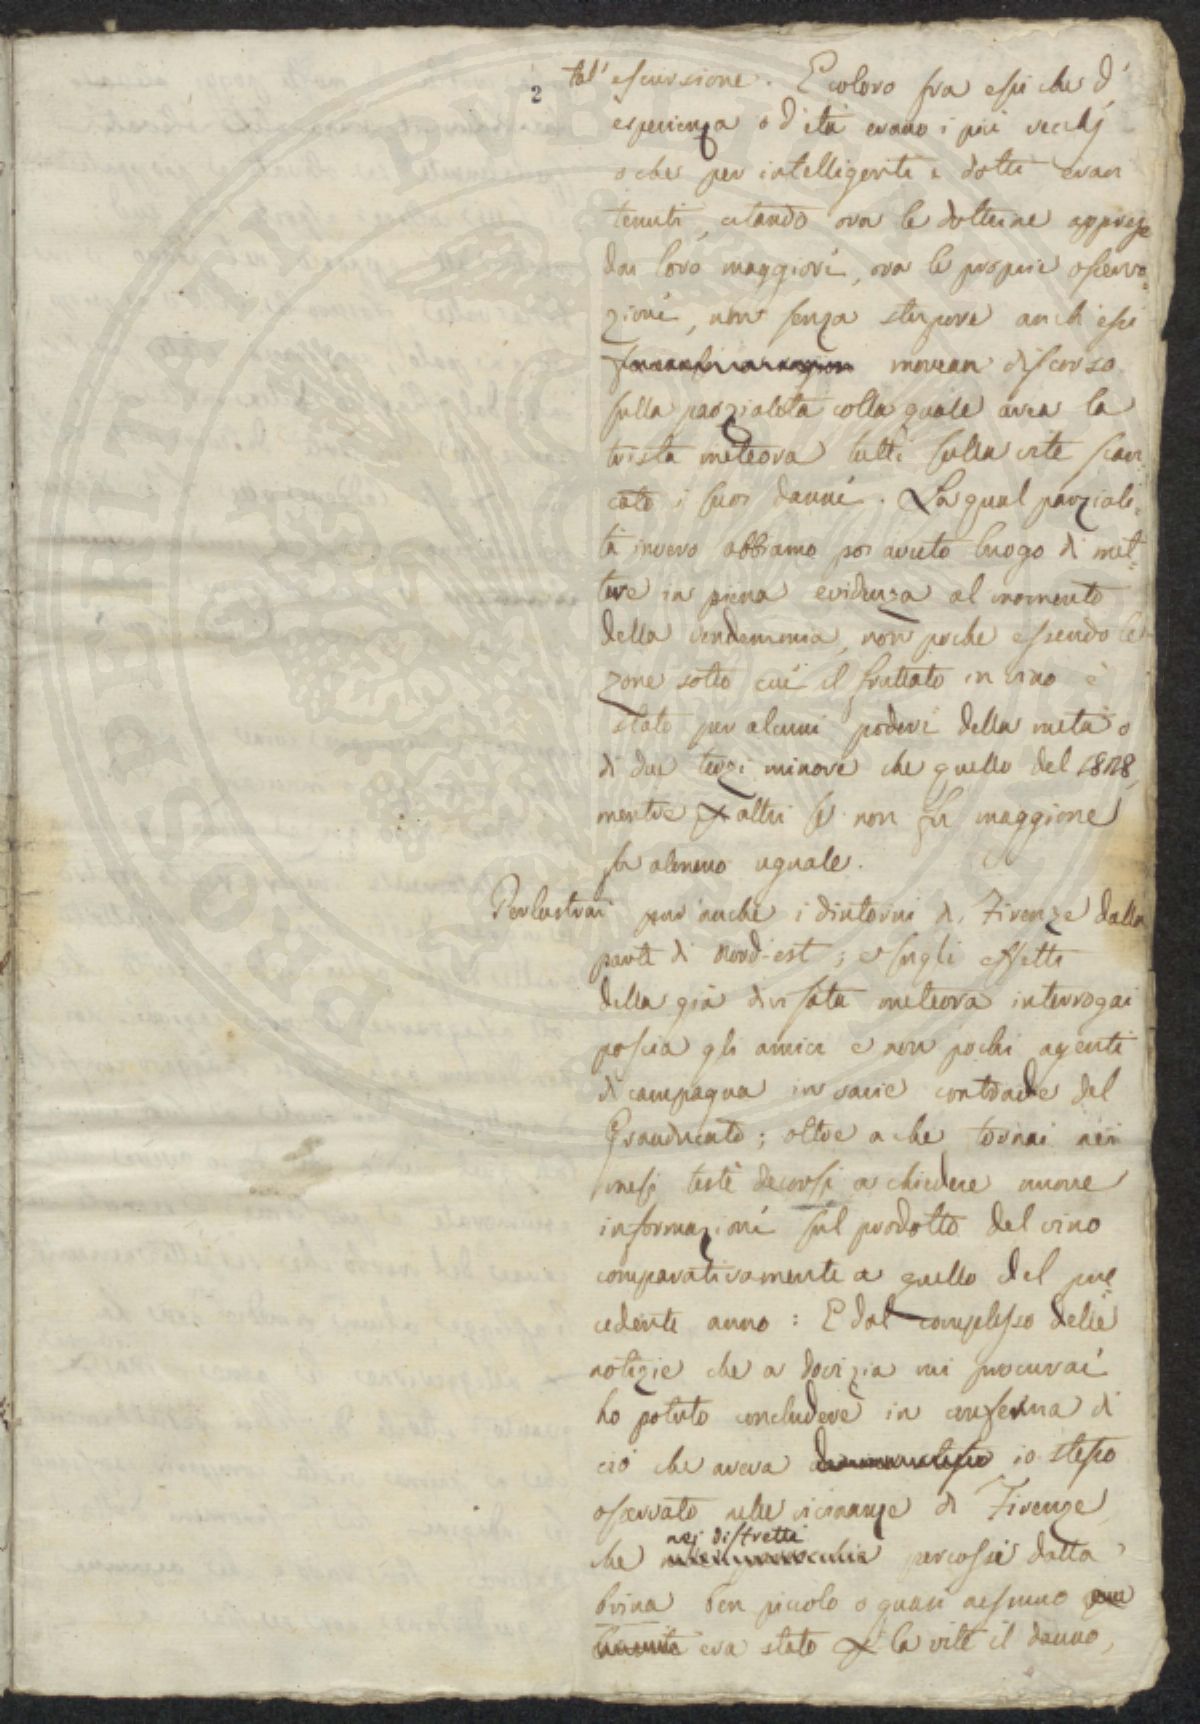 2
tal' escursione. E coloro fra essi che d'
esperienza o d'età erano i più vecchj
o che per intelligenti e dotti eran
tenuti, citando ora le dottrine apprese
dai loro maggiori, ora le proprie osserva-
zioni, non senza stupore anch'essi
movean discorso
sulla parzialità colla quale avea la
trista meteora tutti sulla vite scari-
cato i suoi danni. La qual parziali-
tà invero abbiamo poi avuto luogo di met-
tere in piena evidenza al momento
della vendemmia, non poche essendo le
zone sotto cui il fruttato in vino è
stato per alcuni poderi della metà o
di due terzi minore che quello del 1828,
mentre p altri se non fu maggiore
fu almeno uguale.
Perlustrai pur anche i dintorni di Firenze dalla
parte di Nord-est; e sugli effetti
della già divisata meteora interrogai
poscia gli amici e non pochi agenti
di campagna in varie contrade del
Granducato; oltre a che tornai nei
mesi testè decorsi a chiedere nuove
informazioni sul prodotto del vino
comparativamente a quello del pre-
cedente anno: E dal complesso delle
notizie che a dovizia mi procurai
ho potuto concludere in conferma di
ciò che aveva io stesso
osservato nelle vicinanze di Firenze,
che nei distretti percossi dalla
brina ben piccolo o quasi nessuno
era stato p la vite il danno,
PROSPERITATI PVBLICAE